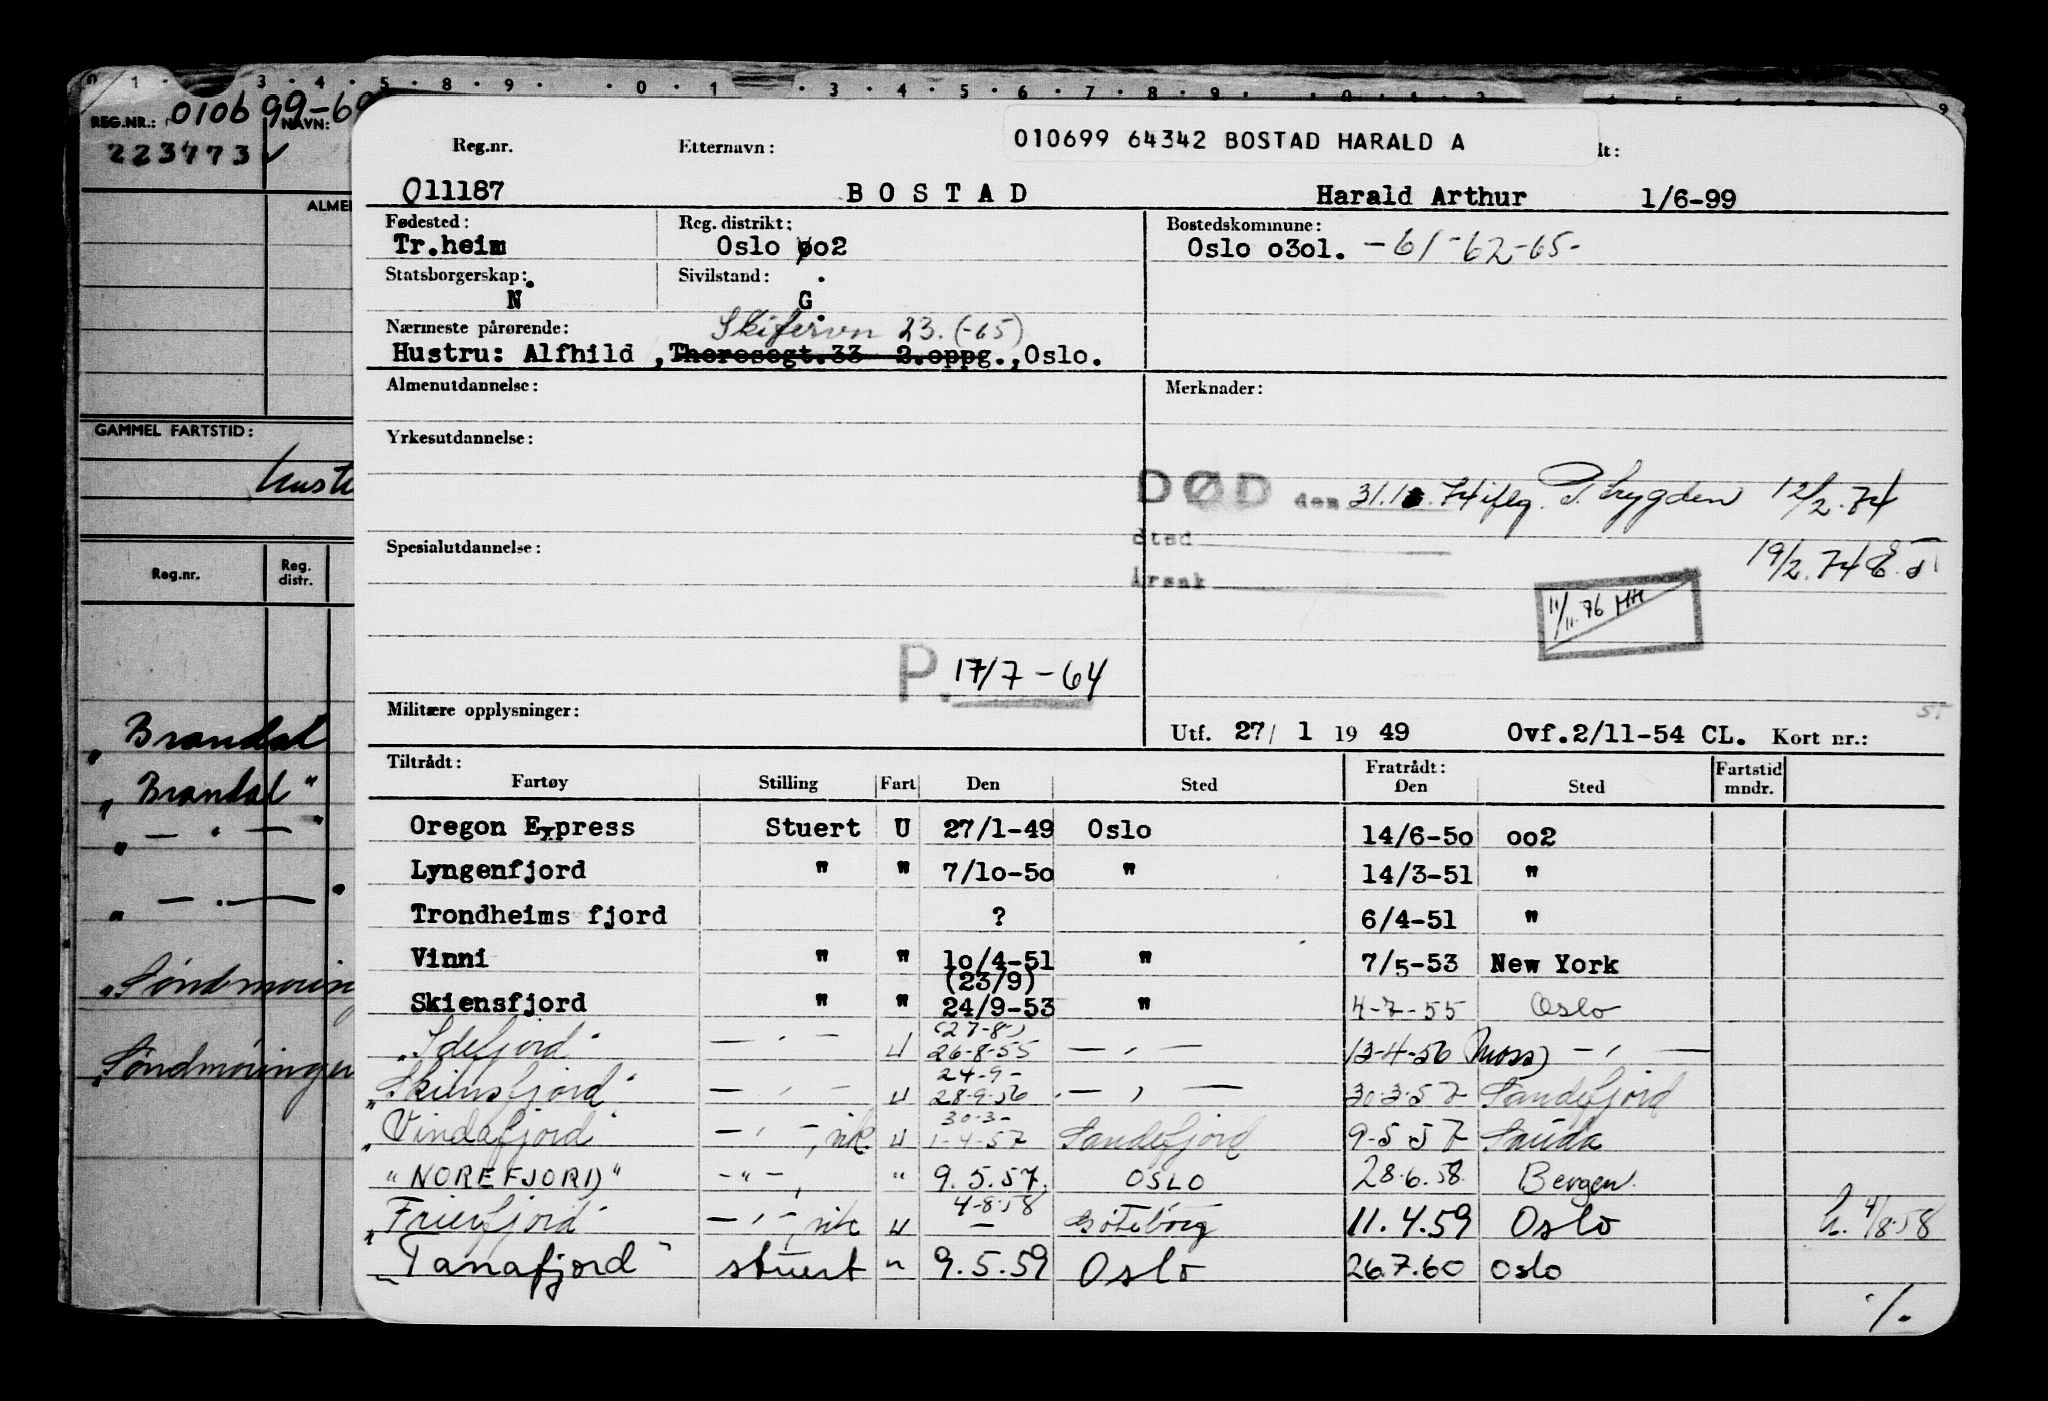 REG.NR.: 010699-6
NAVN:
223773 ✓
GAMMEL FARTSTID:
Reg.nr. Reg. distr.
„Brandal
„Brandal"
„ — " — "
„ — . — "
„Søndmøring
„Søndmøringen
010699 64342 BOSTAD HARALD A
Reg.nr. Etternavn:
011187 BOSTAD Harald Arthur 1/6-99
Fødested: Reg. distrikt: Bostedskommune:
Tr.heim Oslo oo2 Oslo o3ol. -61-62-65-
Statsborgerskap: Sivilstand:
N G
Nærmeste pårørende: Skifervn 23. (-65)
Hustru: Alfhild ,Theresegt.33 2.oppg.,Oslo.
Almenutdannelse: Merknader:
Yrkesutdannelse:
DØD den 31.1.74 iflg. P. trygden 12/2.74
Spesialutdannelse: sted
19/2.74
Årsak
11/11.76 HH
P. 17/7-64
Militære opplysninger:
Utf. 27/ 1 19 49 Ovf.2/11-54 CL. Kort nr.:
Tiltrådt: Fratrådt: Fartstid
Fartøy Stilling Fart Den Sted Den Sted mndr.
Oregon Express Stuert U 27/1-49 Oslo 14/6-5o oo2
Lyngenfjord " " 7/1o-5o " 14/3-51 "
Trondheims fjord ? 6/4-51 "
Vinni " " 1o/4-51 " 7/5-53 New York
(23/9)
Skiensfjord " " 24/9-53 " 4-7-55 Oslo
(27-8-)
„Idefjord" — " — U 26-8-55 — " — 13-4-56 (Moss) — " —
24-9-
„Skiensfjord" — " — U 28-9-56 — " — 30-3-57 Sandefjord
30-3-
„Vindafjord" — " —, vik. U 1-4-57 Sandefjord 9-5-57 Sauda
"NOREFJORD" -"-, " 9.5.57. OSLO 28.6.58. Bergen.
4-8-58
„Frierfjord" — " —, vik U — Göteborg 11.4.59 Oslo h. 4/8-58
„Tanafjord" stuert " 9.5.59 Oslo 26.7.60 Oslo
./.